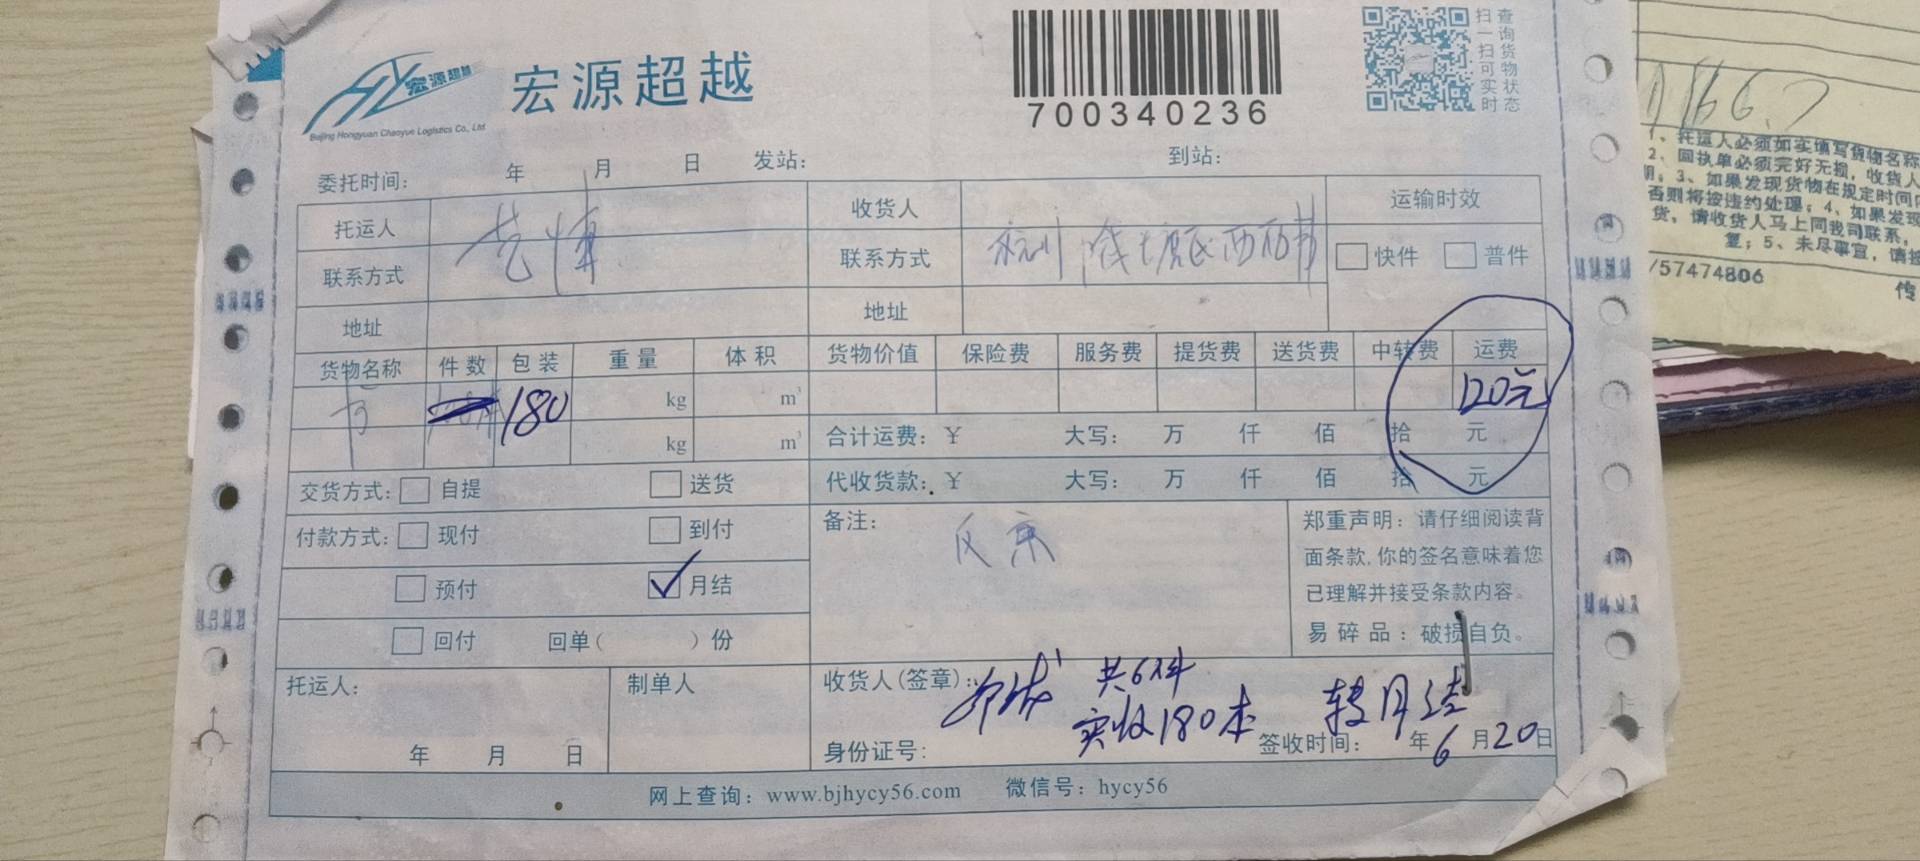 宏源超越
宏源超越
Beijing Hongyuan Chaoyue Logistics Co., Ltd
700340236
查询货物状态
扫一扫可实时
委托时间: 年 月 日 发站: 到站:
托运人
联系方式
地址
收货人
联系方式 杭州
地址
运输时效
快件 普件
货物名称 件数 包装 重量 体积 货物价值 保险费 服务费 提货费 送货费 中转费 运费
书 180 kg m³ 120元
kg m³ 合计运费: ¥ 大写: 万 仟 佰 拾 元
交货方式: 自提 送货 代收货款: ¥ 大写: 万 仟 佰 拾 元
付款方式: 现付 到付
预付 月结
回付 回单( )份
备注:
郑重声明: 请仔细阅读背
面条款,你的签名意味着您
已理解并接受条款内容。
易碎品: 破损自负。
托运人: 年 月 日
制单人
收货人(签章): 共6件
实收180本 转月结
身份证号: 签收时间: 年 6 月 20 日
网上查询: www.bjhycy56.com 微信号: hycy56
1、托运人必须如实填写货物名称
2、回执单必须完好无损,收货人
3、如果发现货物在规定时间内
否则将按违约处理; 4、如果发现
货,请收货人马上同我司联系,
复; 5、未尽事宜,请按
/57474806 传